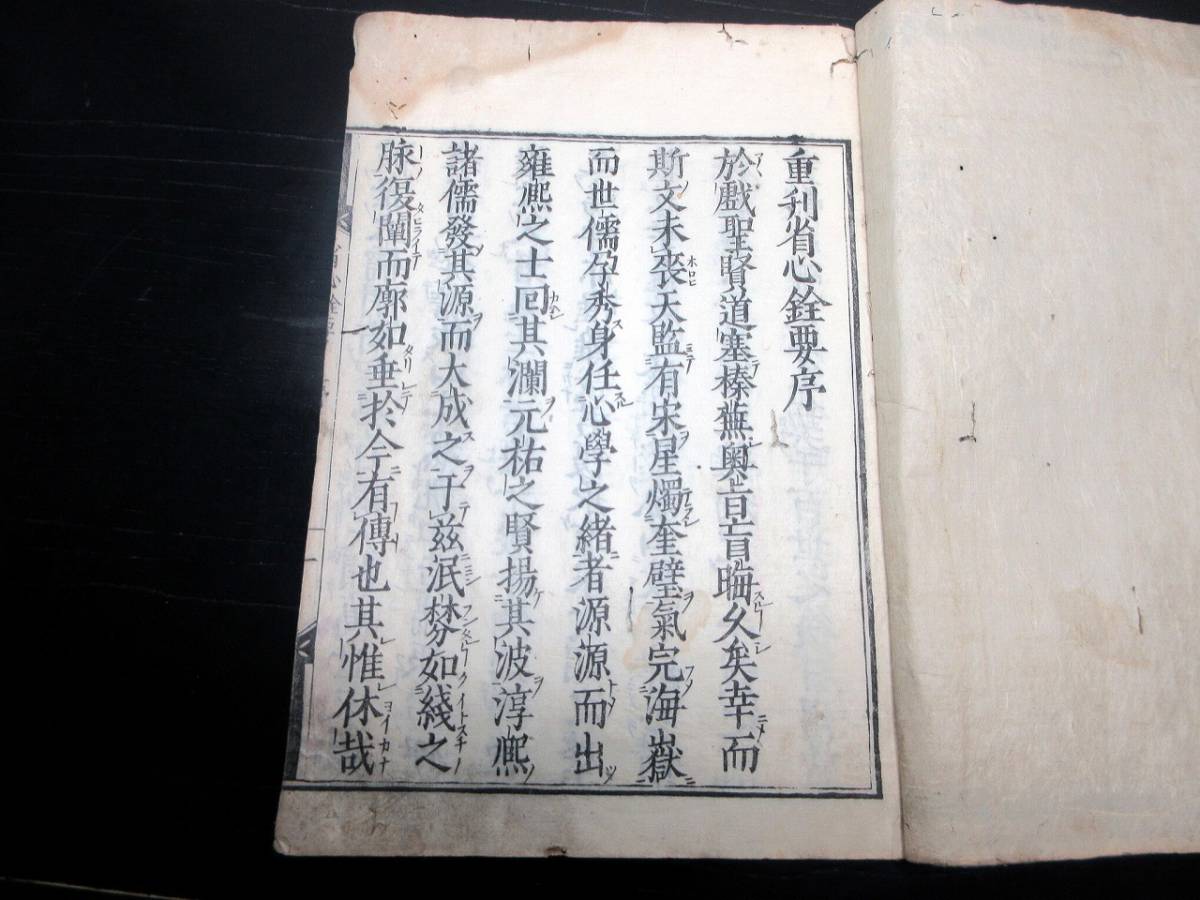 重刋省心銓要序
於戲聖賢道塞榛蕪奧旨盲晦久矣幸而
斯文未喪天監有宋星燭奎壁氣完海嶽
而世儒孕秀身任心學之緒者源源而出
雍熈之士回其瀾元祐之賢揚其波淳熈
諸儒發其源而大成之于兹泯棼如綫之
脉復闡而廓如垂於今有傳也其惟休哉